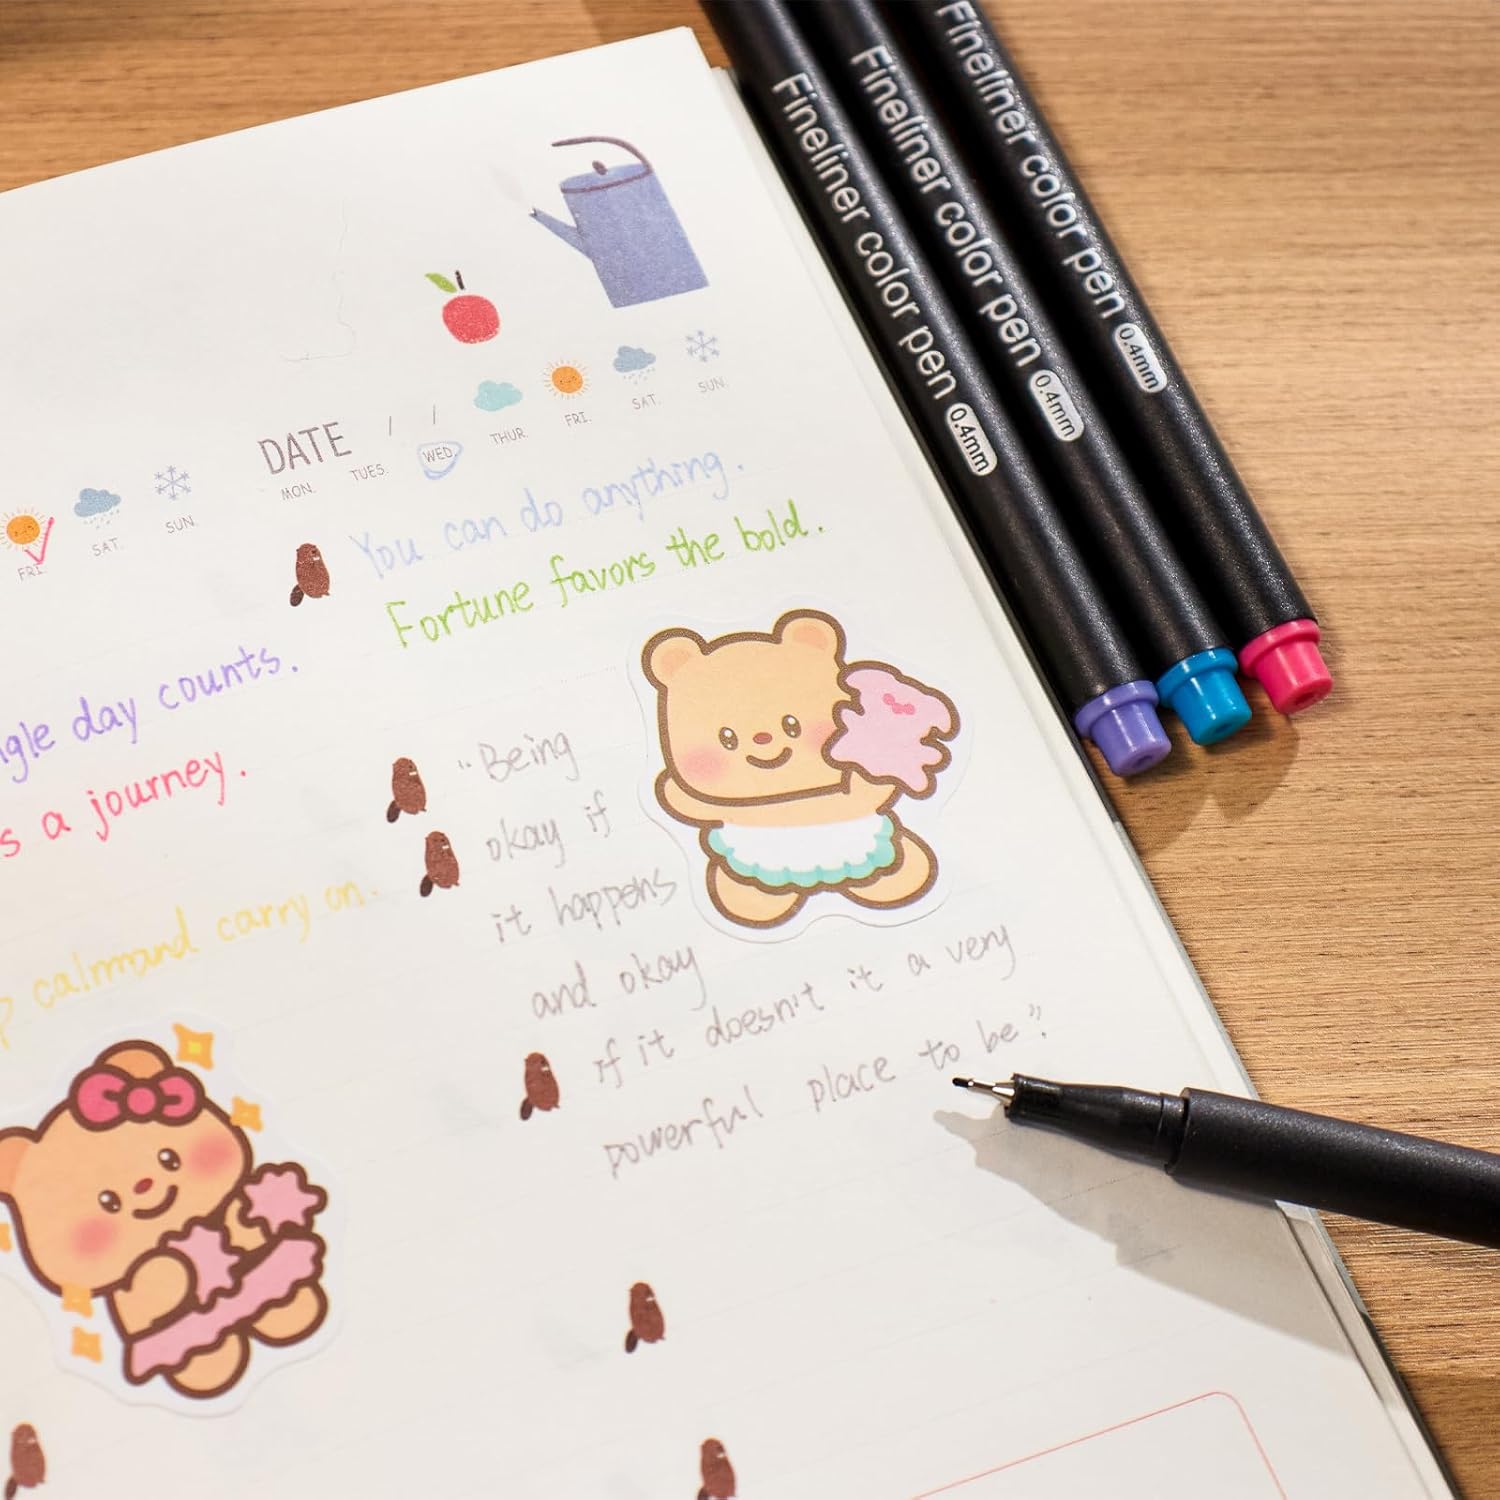 Fineliner color pen 0.4mm
Fineliner color pen 0.4mm
Fineliner color pen 0.4mm
FRI. SAT. SUN.
day counts.
a journey.
calmand carry on.
DATE / /
MON. TUES. WED. THUR. FRI. SAT. SUN.
You can do anything.
Fortune favors the bold.
"Being
okay if
it happens
and okay
if it doesn't it a very
powerful place to be".